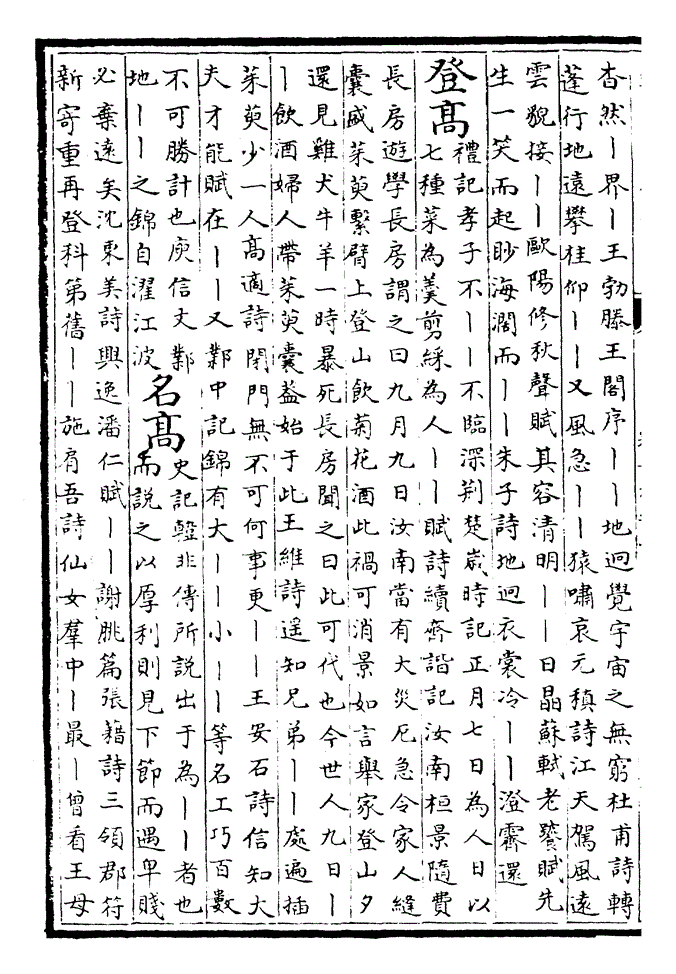 杳然丨界丨王勃滕王閣序丨丨地迥覺宇宙之無窮杜甫詩轉
蓬行地遠攀桂仰丨丨又風急丨丨猿嘯哀元稹詩江天駕風遠
雲貌接丨丨歐陽修秋聲賦其容清明丨丨日晶蘇軾老饕賦先
生一笑而起眇海濶而丨丨朱子詩地迥衣裳冷丨丨澄霽還
登高
禮記孝子不丨丨不臨深荆楚嵗時記正月七日為人日以
七種菜為羮剪綵為人丨丨賦詩續齊諧記汝南桓景隨費
長房遊學長房謂之曰九月九日汝南當有大災厄急令家人縫
囊盛茱萸繫臂上登山飲菊花酒此禍可消景如言舉家登山夕
還見雞犬牛羊一時暴死長房聞之曰此可代也今世人九日丨
丨飲酒婦人帶茱萸囊葢始于此王維詩遥知兄弟丨丨處遍插
茱萸少一人高適詩閉門無不可何事更丨丨王安石詩信知大
夫才能賦在丨丨又鄴中記錦有大丨丨小丨丨等名工巧百數
不可勝計也庾信文鄴
地丨丨之錦自濯江波
名高
史記韓非傳所説出于為丨丨者也
而說之以厚利則見下節而遇卑賤
必棄遠矣沈東美詩興逸潘仁賦丨丨謝朓篇張籍詩三領郡符
新寄重再登科第舊丨丨施肩吾詩仙女羣中丨最丨曾看王母